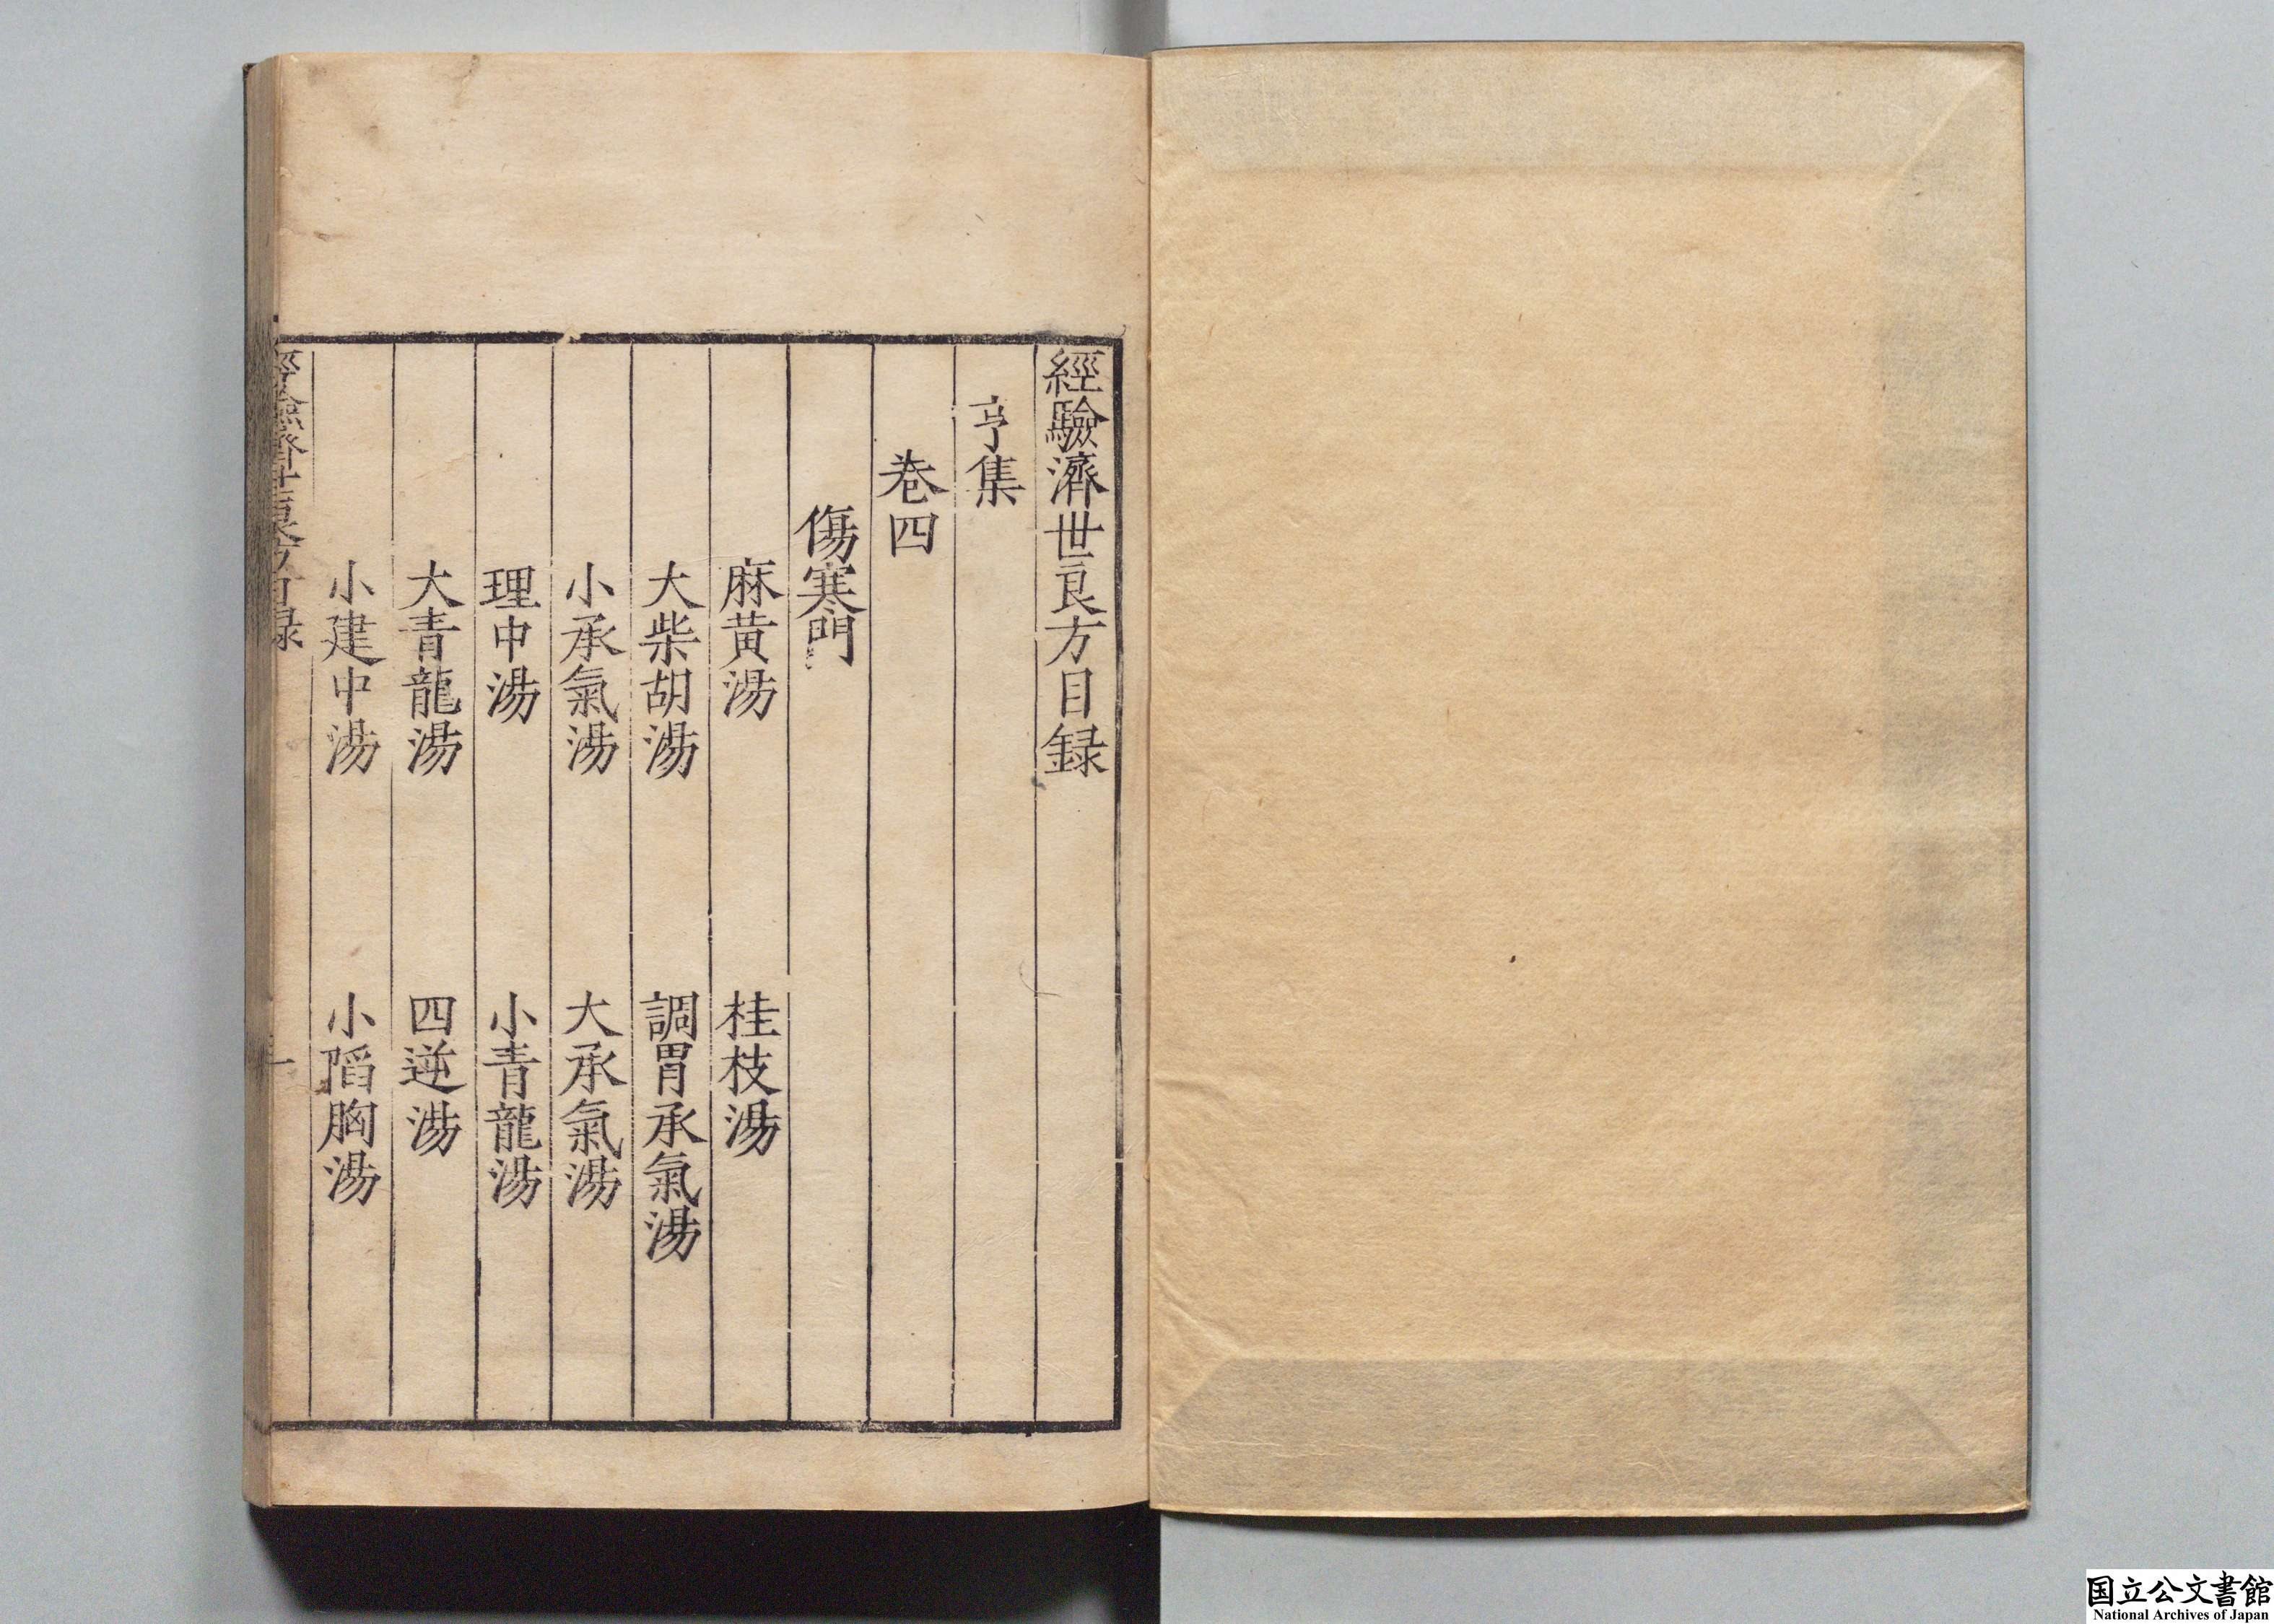 經驗濟世良方目録
亨集
卷四
傷寒門
麻黄湯
桂枝湯
大柴胡湯
調胃承氣湯
小承氣湯
大承氣湯
理中湯
小青龍湯
大青龍湯
四逆湯
小建中湯
小陷胸湯
經驗濟世良方目録
一
国立公文書館
National Archives of Japan